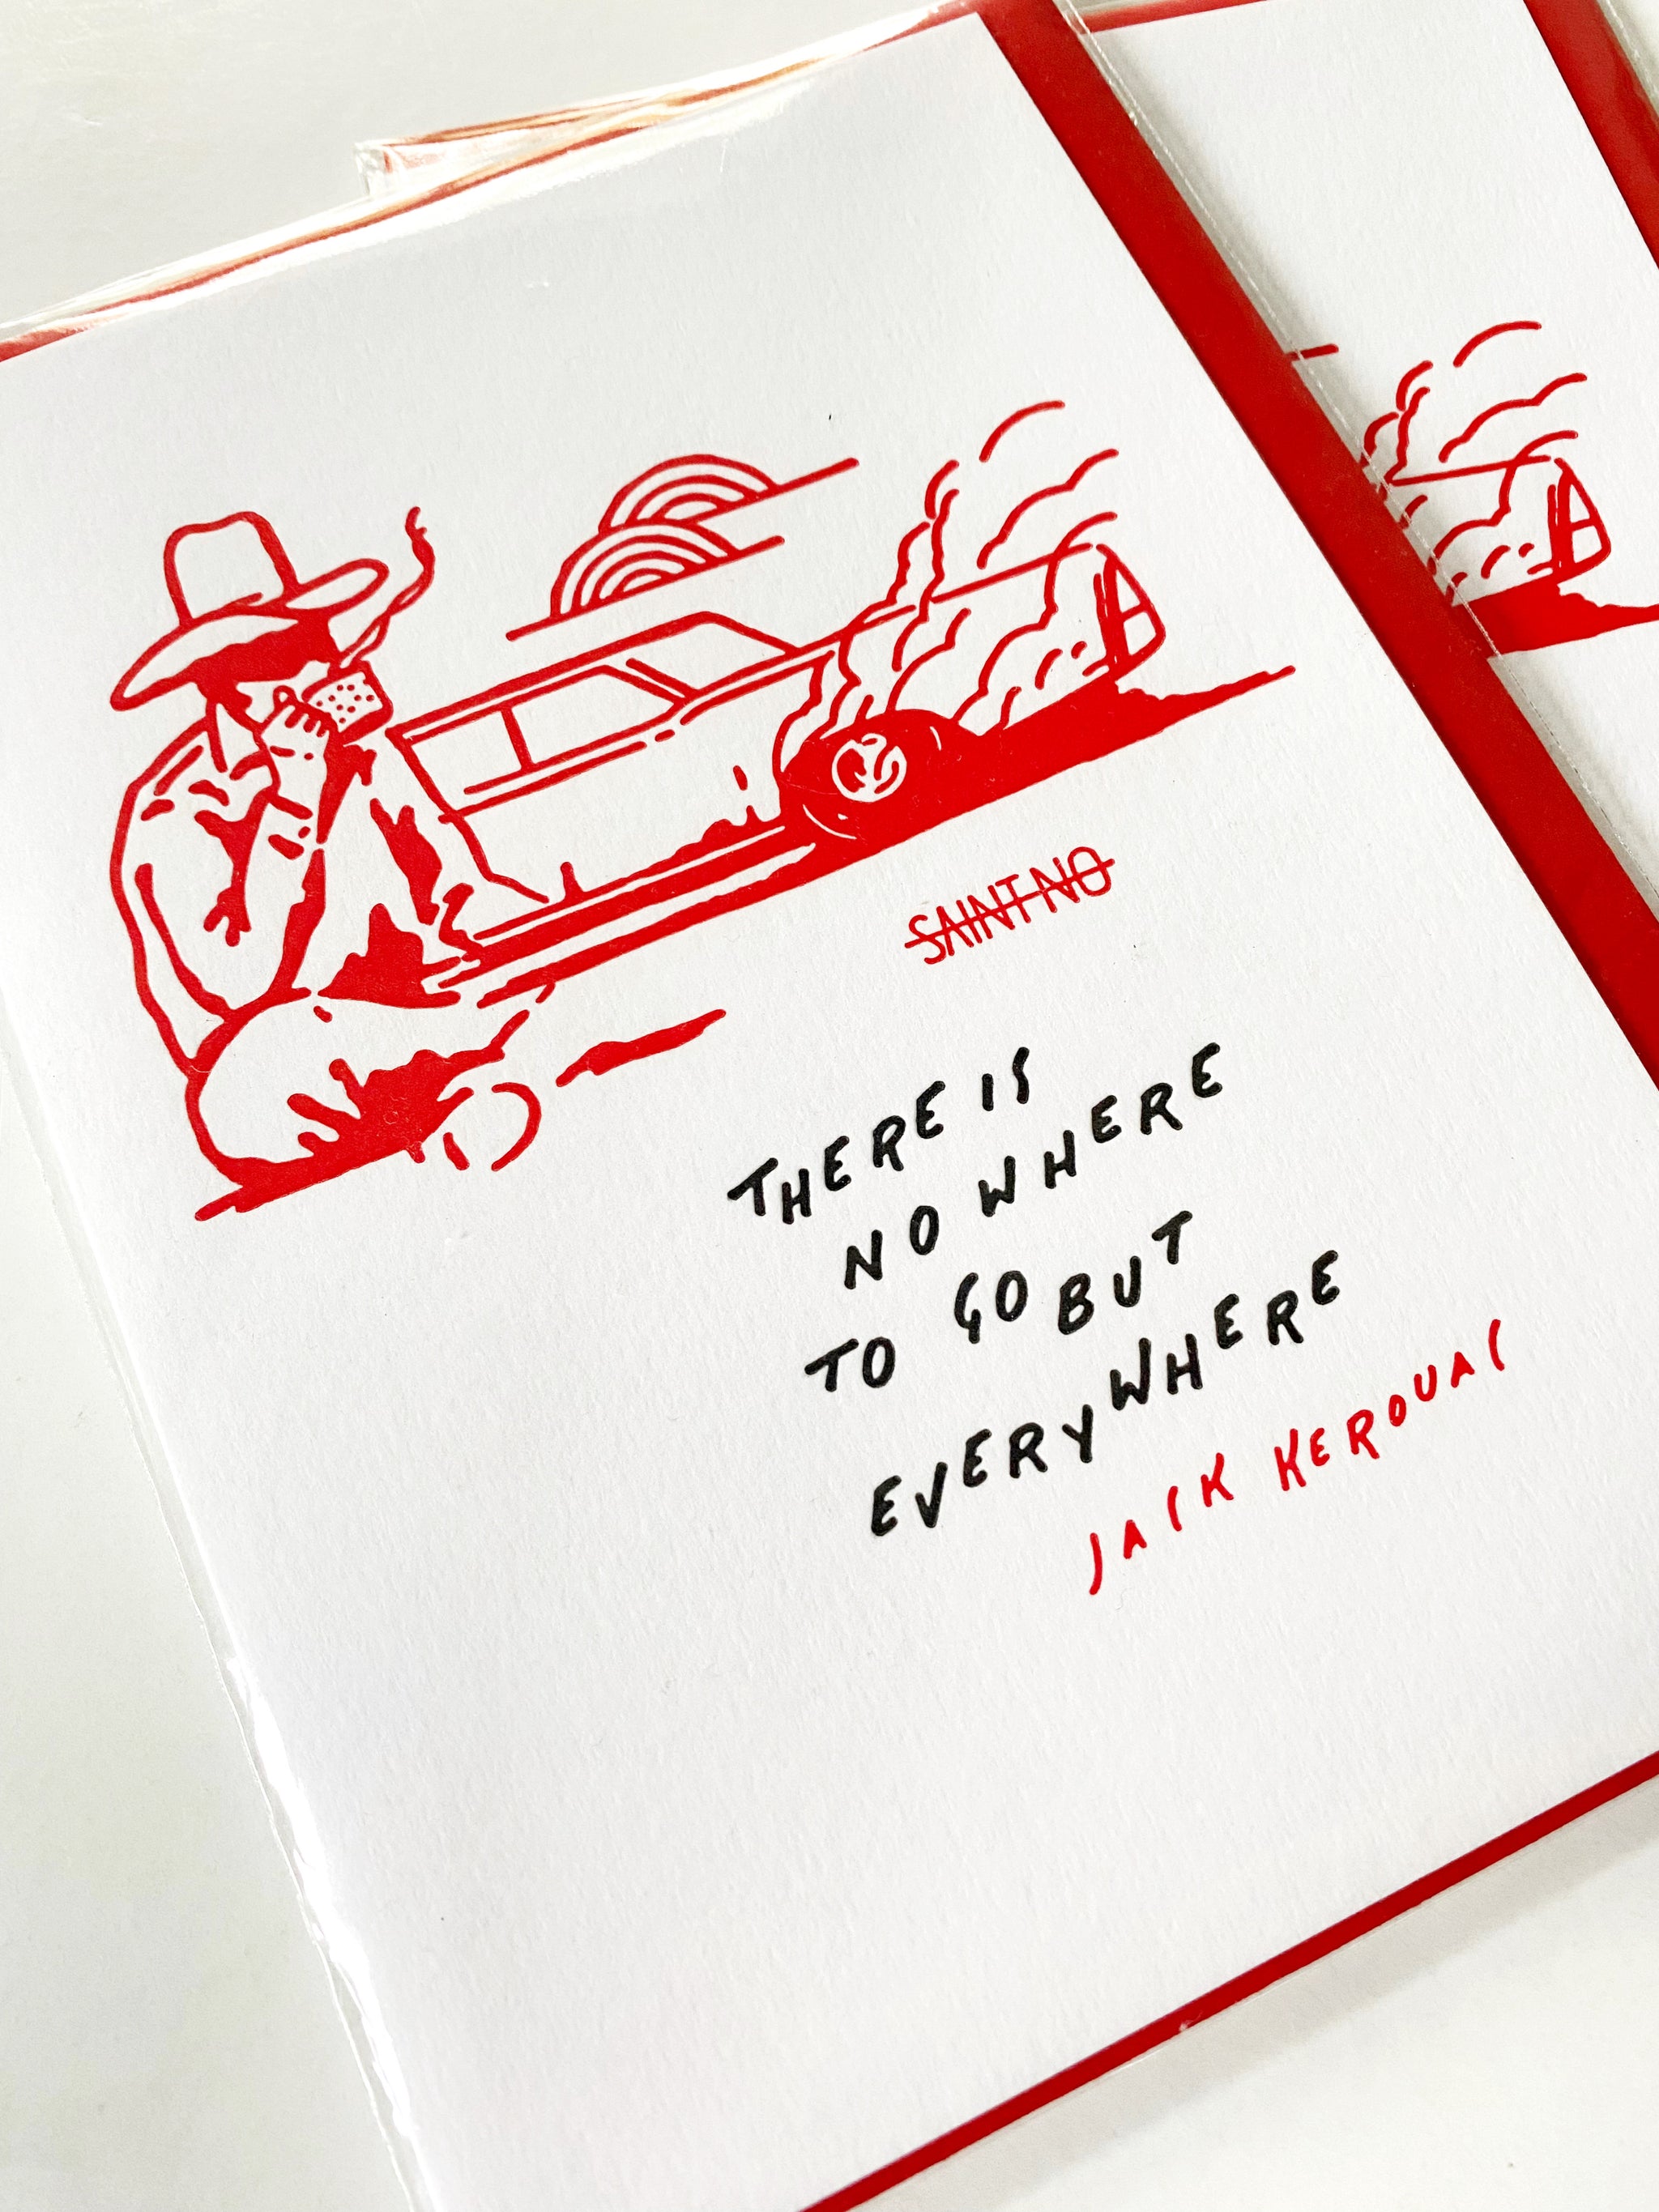 SAINT NO
THERE IS
NO WHERE
TO GO BUT
EVERYWHERE
JACK KEROUAC